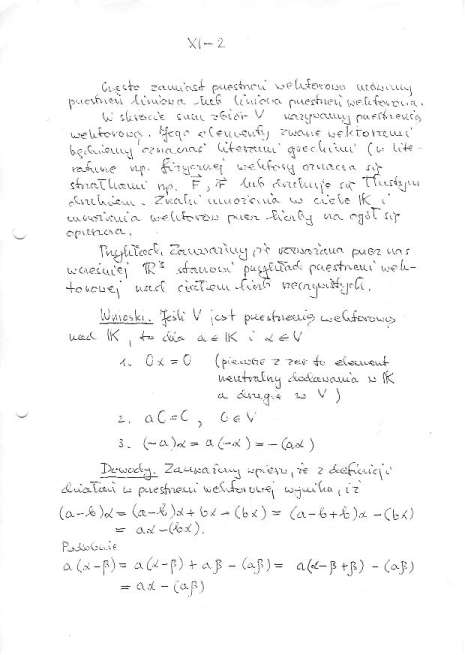 XI-2
Często zamiast przestrzeń wektorowa mówimy
przestrzeń liniowa lub liniowa przestrzeń wektorowa.
W skrócie sam zbiór V nazywamy przestrzenią
wektorową. Jego elementy zwane wektorami
będziemy oznaczać literami greckimi (w lite-
raturze np. fizycznej wektory oznacza się
strzałkami np. F, r lub drukuje się tłustym
drukiem. Znaki mnożenia w ciele K i
mnożenia wektorów przez liczby na ogół się
opuszcza.
Przykład. Zauważmy, że rozważana przez nas
wcześniej ℝ³ stanowi przykład przestrzeni wek-
torowej nad ciałem liczb rzeczywistych.
Wnioski. Jeśli V jest przestrzenią wektorową
nad K, to dla a ∈ K i α ∈ V
1. 0α = 0 (pierwsze z zer to element
neutralny dodawania w K
a drugie w V)
2. a0 = 0, 0 ∈ V
3. (-a)α = a(-α) = -(aα)
Dowody. Zauważmy wpierw, że z definicji
działań w przestrzeni wektorowej wynika, iż
(a-b)α = (a-b)α + bα - (bα) = (a-b+b)α - (bα)
= aα - (bα).
Podobnie
a(α-β) = a(α-β) + aβ - (aβ) = a(α-β+β) - (aβ)
= aα - (aβ)